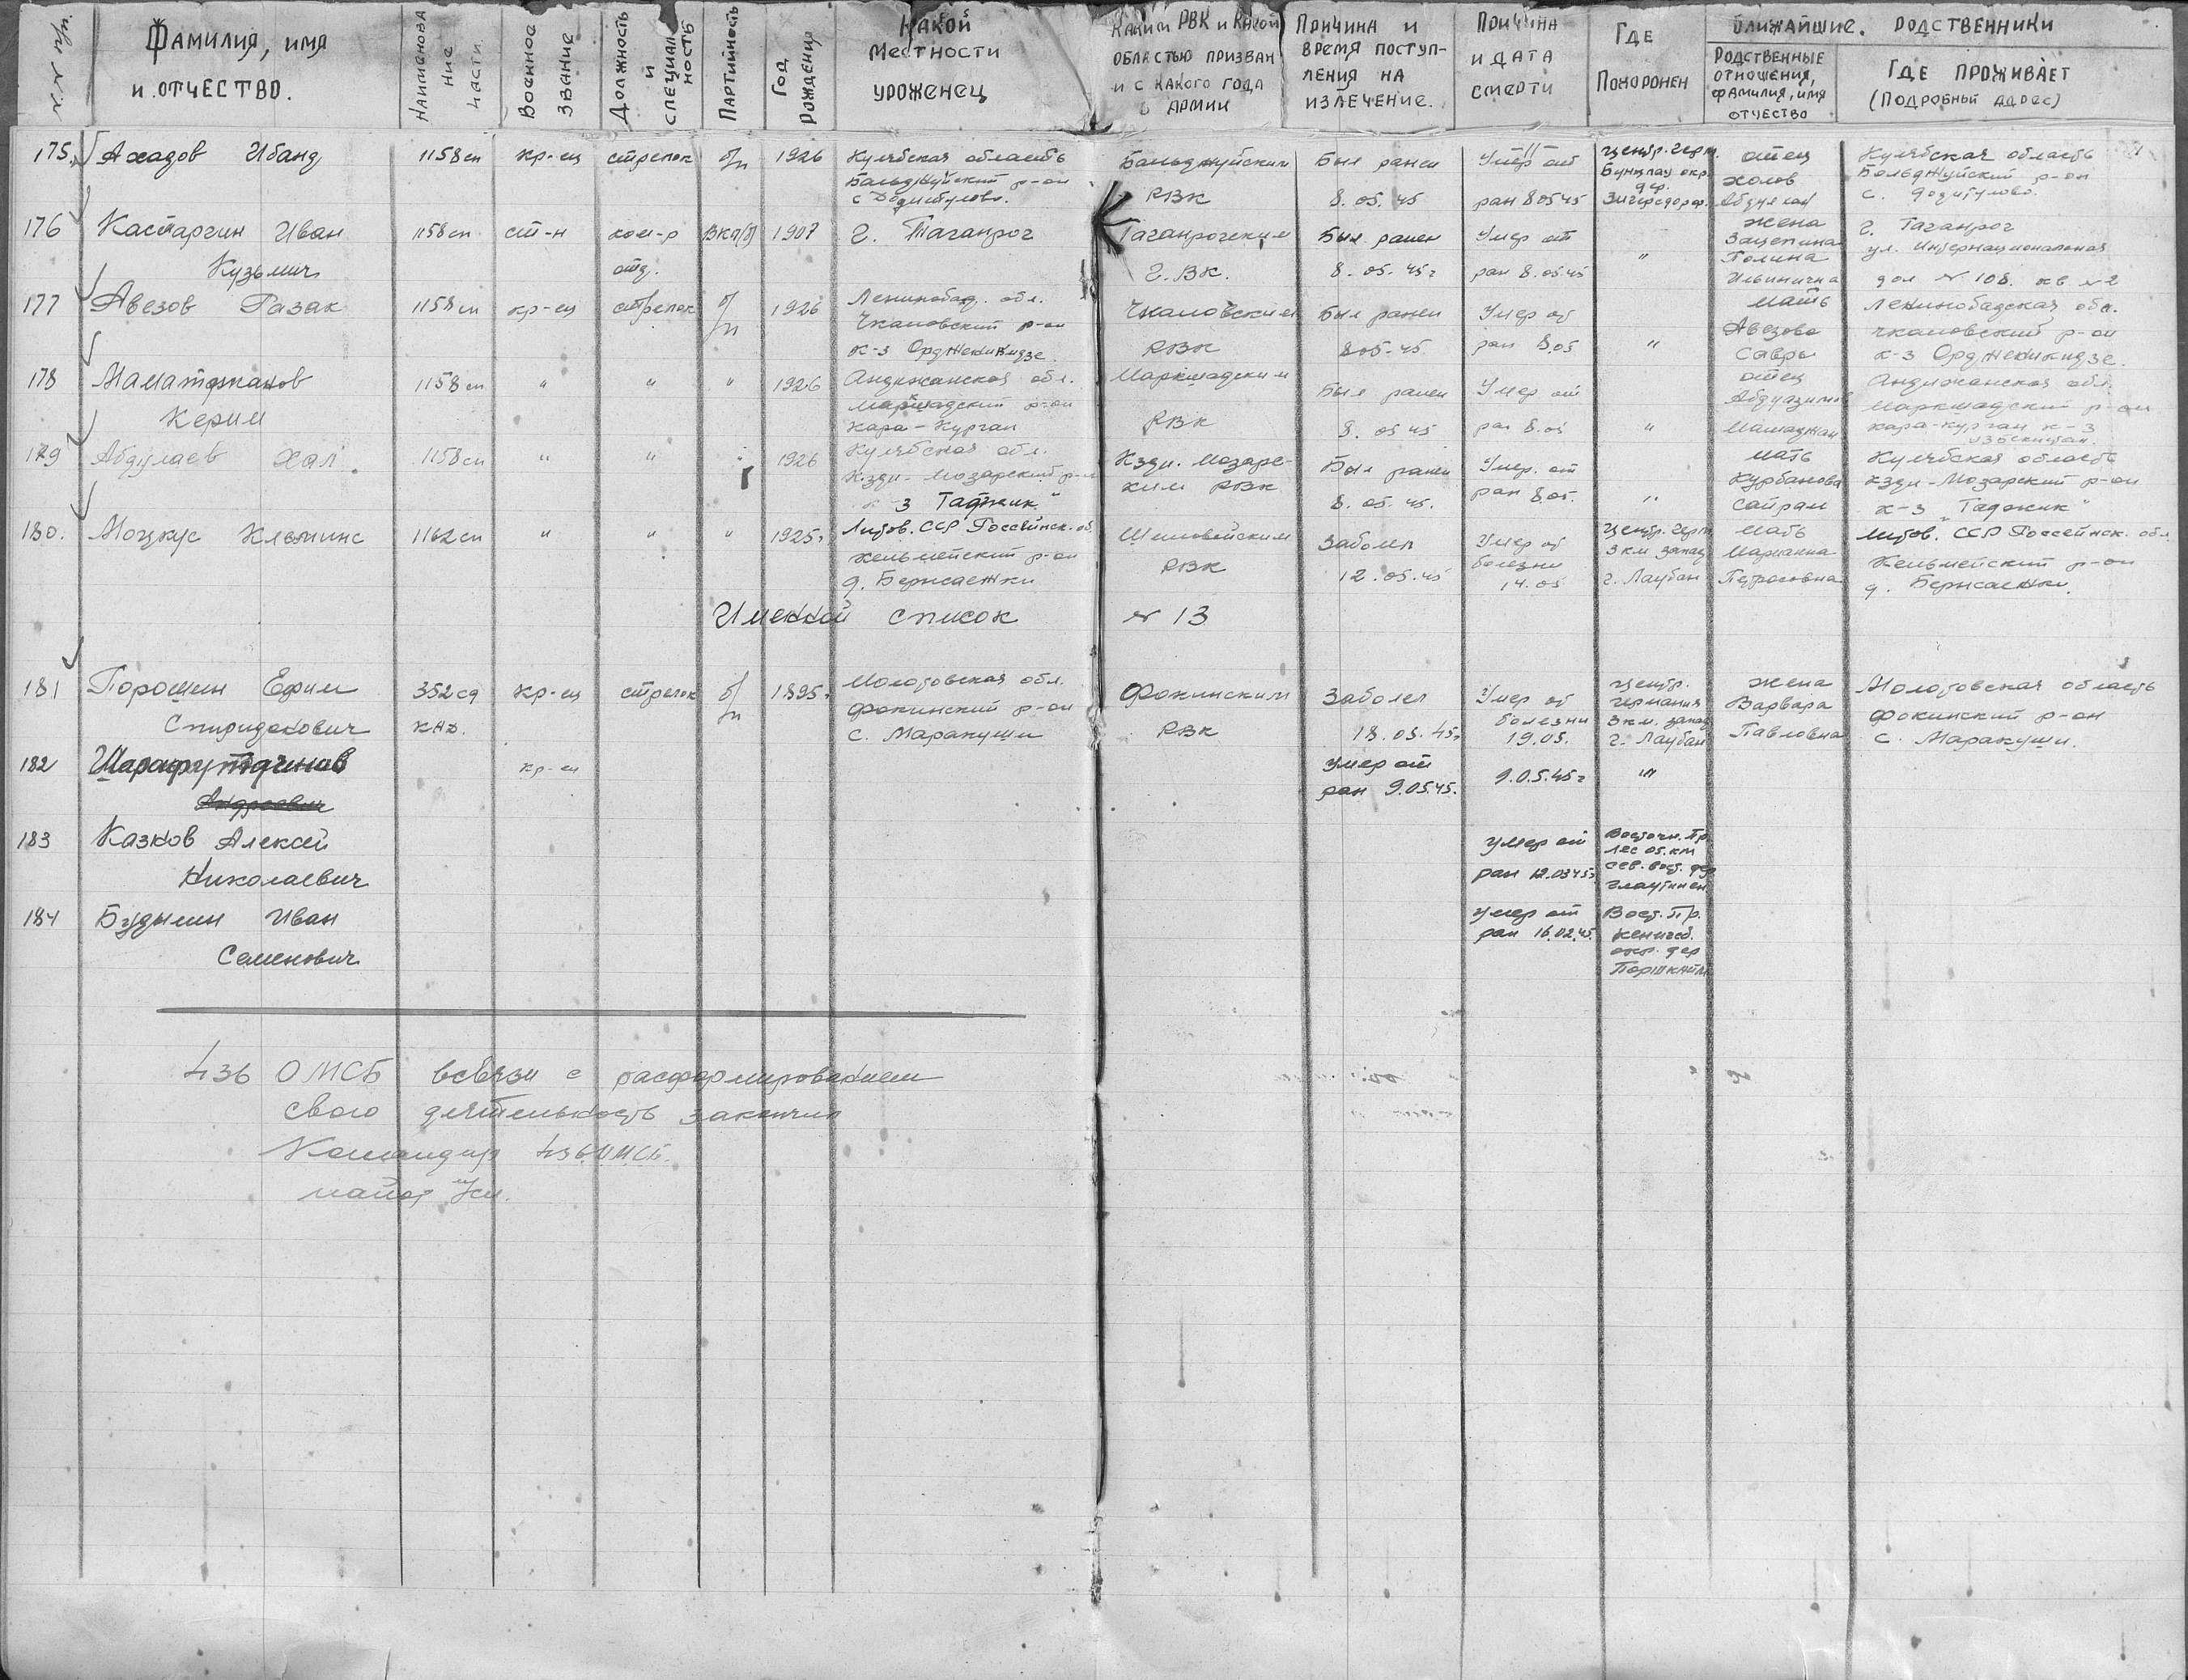 №№ п/п.
Фамилия, имя
и отчество.
Наименова
ние
части
Военное
звание
Должность
и
специаль
ность
Партийность
Год
рождения
Какой
местности
уроженец
Каким РВК и какой
областью призван
и с какого года
в армии
Причина и
время поступ-
ления на
излечение.
Причина
и дата
смерти
Где
похоронен
Ближайшие родственники
Родственные
отношения,
фамилия, имя
отчество
Где проживает
(подробный адрес)
175. Ахадов Ибанд 1158 сп кр-ец стрелок б/п 1926 Кулябская область Бальджуйским Был ранен Умер от центр. герм. отец Кулябская область
Бальджуйский р-он РВК 8.05.45 ран 8.05.45 Бунцлау окр. Холов Бальджуйский р-он
дер.
176 Кастаргин Иван 1158 сп ст-н ком-р ВКП(б) 1907 г. Таганрог Таганрогским Был ранен Умер от " жена г. Таганрог
Кузьмич отд. Г.ВК. 8.05.45г ран 8.05.45 Зацепина ул. Интернациональная
Ильинична дом № 108. кв №2
177 Авезов Разак 1158 сп кр-ец стрелок б/п 1926 Ленинобад. обл. Чкаловским Был ранен Умер от мать Ленинобадская обл.
Чкаловский р-он РВК 8.05.45 ран 8.05 " Авезова Чкаловский р-он
к-з Орджекикидзе. к-з Орджекикидзе.
178 Маматджанов 1158 сп " " " 1926 Андижанская обл. Был ранен Умер от отец Андижанская обл.
Керим Кара-Курган РВК 8.05.45 ран 8.05 " Мамаджан кара-курган к-з
179 Абдулаев Хал. 1158 сп " " " 1926 Кулябская обл. Кзди. Мозарс- Был ранен Умер. от мать Кулябская область
Кзди-Мозарский р-н ким РВК 8.05.45. ран 8.05. " Курбанова Кзди-Мозарский р-он
к-з Таджик" Сайрам к-з „Таджик"
180. Моцкус 1162 сп " " " 1925г Литов. ССР Россейнск. об. Заболел Умер от центр. герм. мать Литов. ССР Россейнск. обл.
Кельмейский р-он РВК 12.05.45 болезни 3 км запад Марианна Кельмейский р-он
14.05 г. Лаубан Петрасовна
Именкой список № 13
181 Порошин Ефим 352 сд кр-ец стрелок б/п 1895г Молотовская обл. Фокинским Заболел Умер от центр. жена Молотовская область
Спиридонович Фокинский р-он РВК 18.05.45г болезни германия Варвара Фокинский р-он
с. Маракуши 19.05. 3 км. запад Павловна с. Маракуши.
г. Лаубан
182 Шарафутдинов кр-ец Умер от 9.05.45г "
Андреевич ран 9.05.45.
183 Казков Алексей умер от Восточн. Пр.
Николаевич ран 12.03.45г лес 05. км
сев. вост. дер
184 Будылин Иван умер от Вост. Пр.
Семенович ран 16.02.45. Кенигсб.
окр. дер
436 ОМСБ всвязи с расформированием
свою деятельность закончил
Командир 436 ОМСБ.
майор